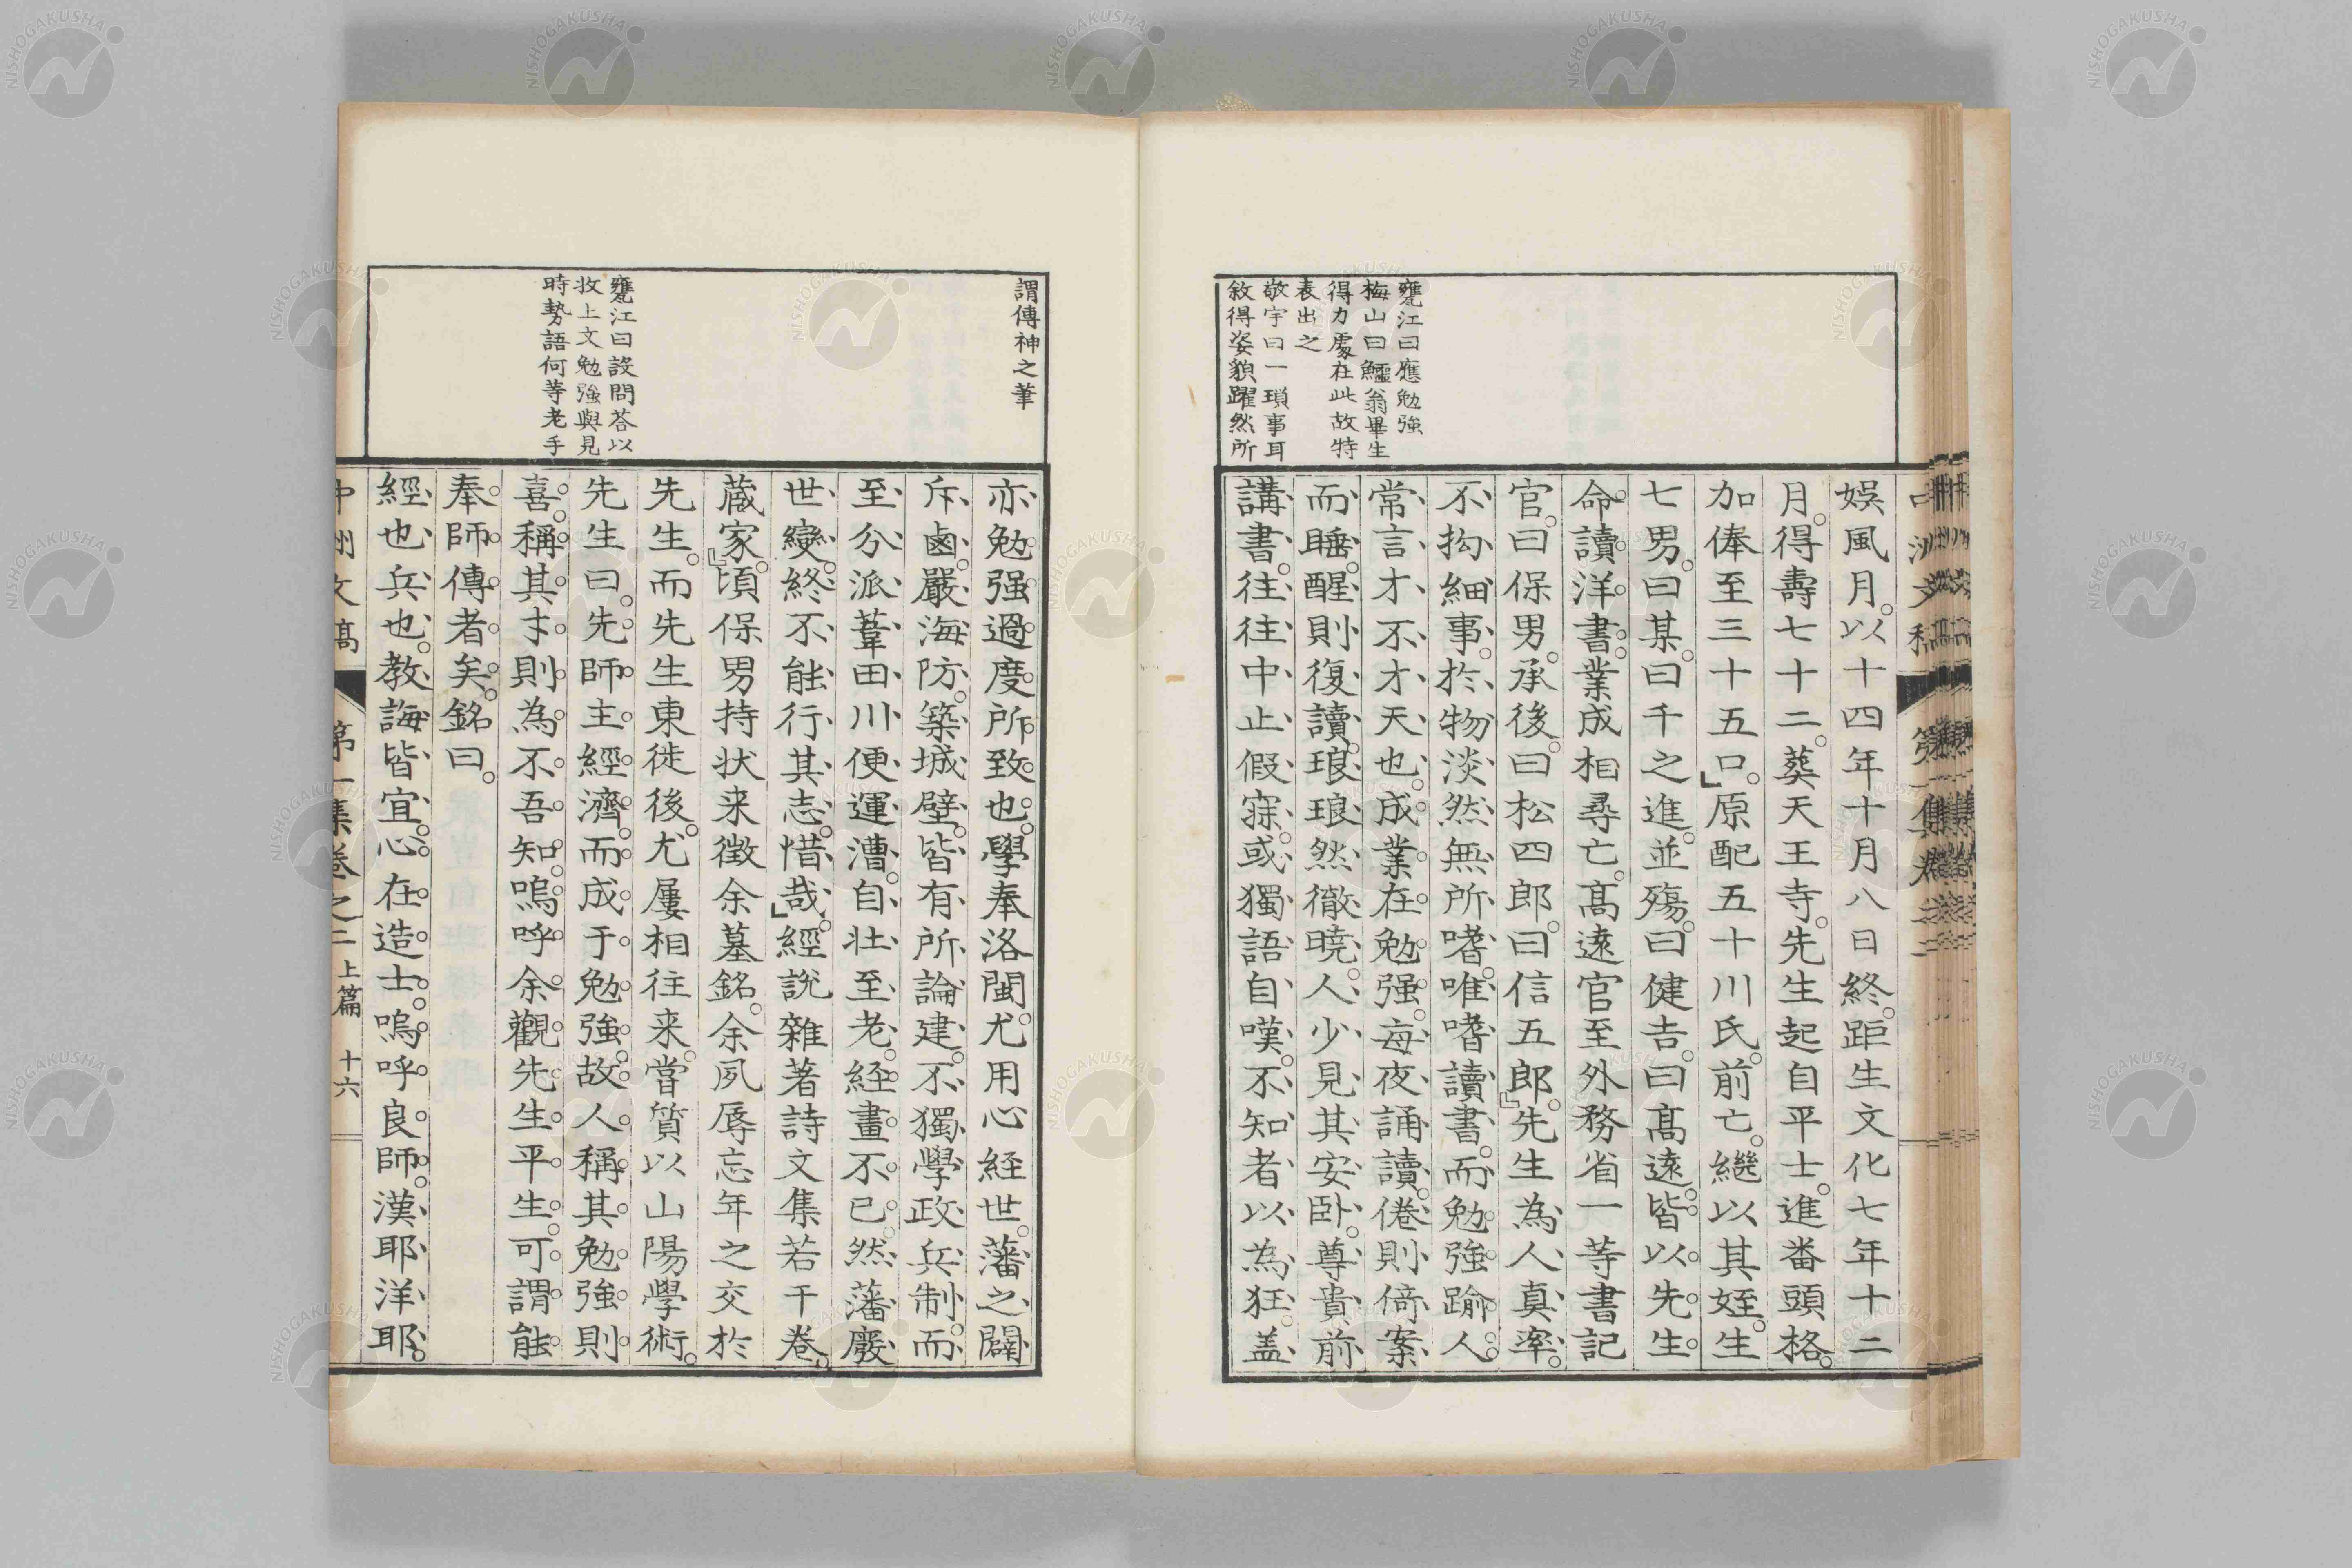 甕江曰應勉強
梅山曰鱸翁畢生
得力處在此故特
表出之
敬宇曰一瑣事耳
敘得姿貌躍然所
娯風月。以十四年十月八日終。距生文化七年十二
月。得壽七十二。葬天王寺。先生起自平士。進番頭格。
加俸至三十五口。」原配五十川氏。前亡。繼以其姪。生
七男。曰某。曰千之進。並殤。曰健吉。曰髙遠。皆以先生
命讀洋書。業成相尋亡。髙遠官至外務省一等書記
官。曰保男。承後。曰松四郎。曰信五郎。」先生為人真率。
不拘細事。於物淡然無所嗜。唯嗜讀書。而勉強踰人。
常言才不才天也。成業在勉强。每夜誦讀。倦則倚案
而睡。醒則復讀。琅琅然徹曉。人少見其安卧。尊貴前
講書。往往中止假寐。或獨語自嘆。不知者以為狂。盖
謂傳神之筆
甕江曰設問答以
收上文勉強與見
時勢語何等老手
亦勉强過度所致也。學奉洛閩。尤用心経世。藩之闢
斥鹵。嚴海防。築城壁。皆有所論建。不獨學政兵制。而
至分派葦田川便運漕。自壮至老。経畫不已。然藩廢
世變。終不能行其志。惜哉。」經説雜著詩文集若干卷。
蔵家。」頃保男持状来徴余墓銘。余夙辱忘年之交於
先生。而先生東徙後。尤屢相往来。嘗質以山陽學術。
先生曰。先師主經濟。而成于勉強。故人稱其勉強則
喜。稱其才則為不吾知。嗚呼余觀先生平生。可謂能
奉師傳者矣。銘曰。
經也兵也。教誨皆宜。心在造士。嗚呼良師。漢耶洋耶。
中洲文稿 第一集卷之二 上篇 十六